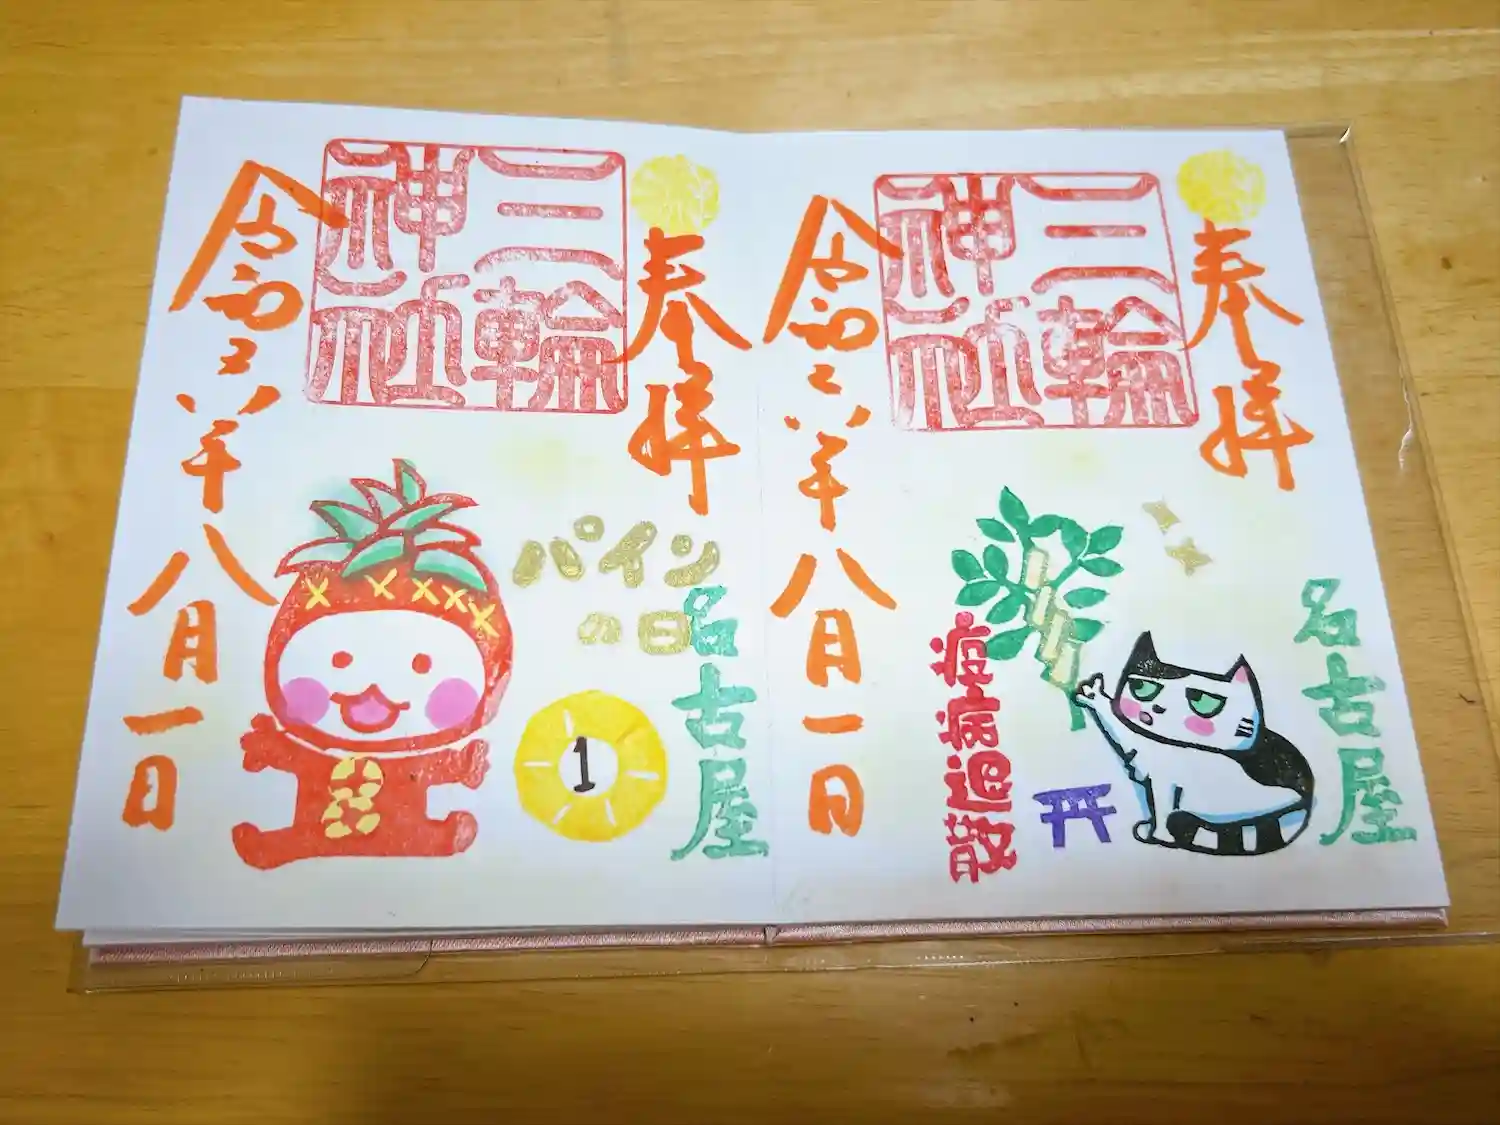 奉拝
名古屋
三輪
神社
疫病退散
令和二年八月一日
奉拝
名古屋
三輪
神社
パイン
の日
1
令和二年八月一日